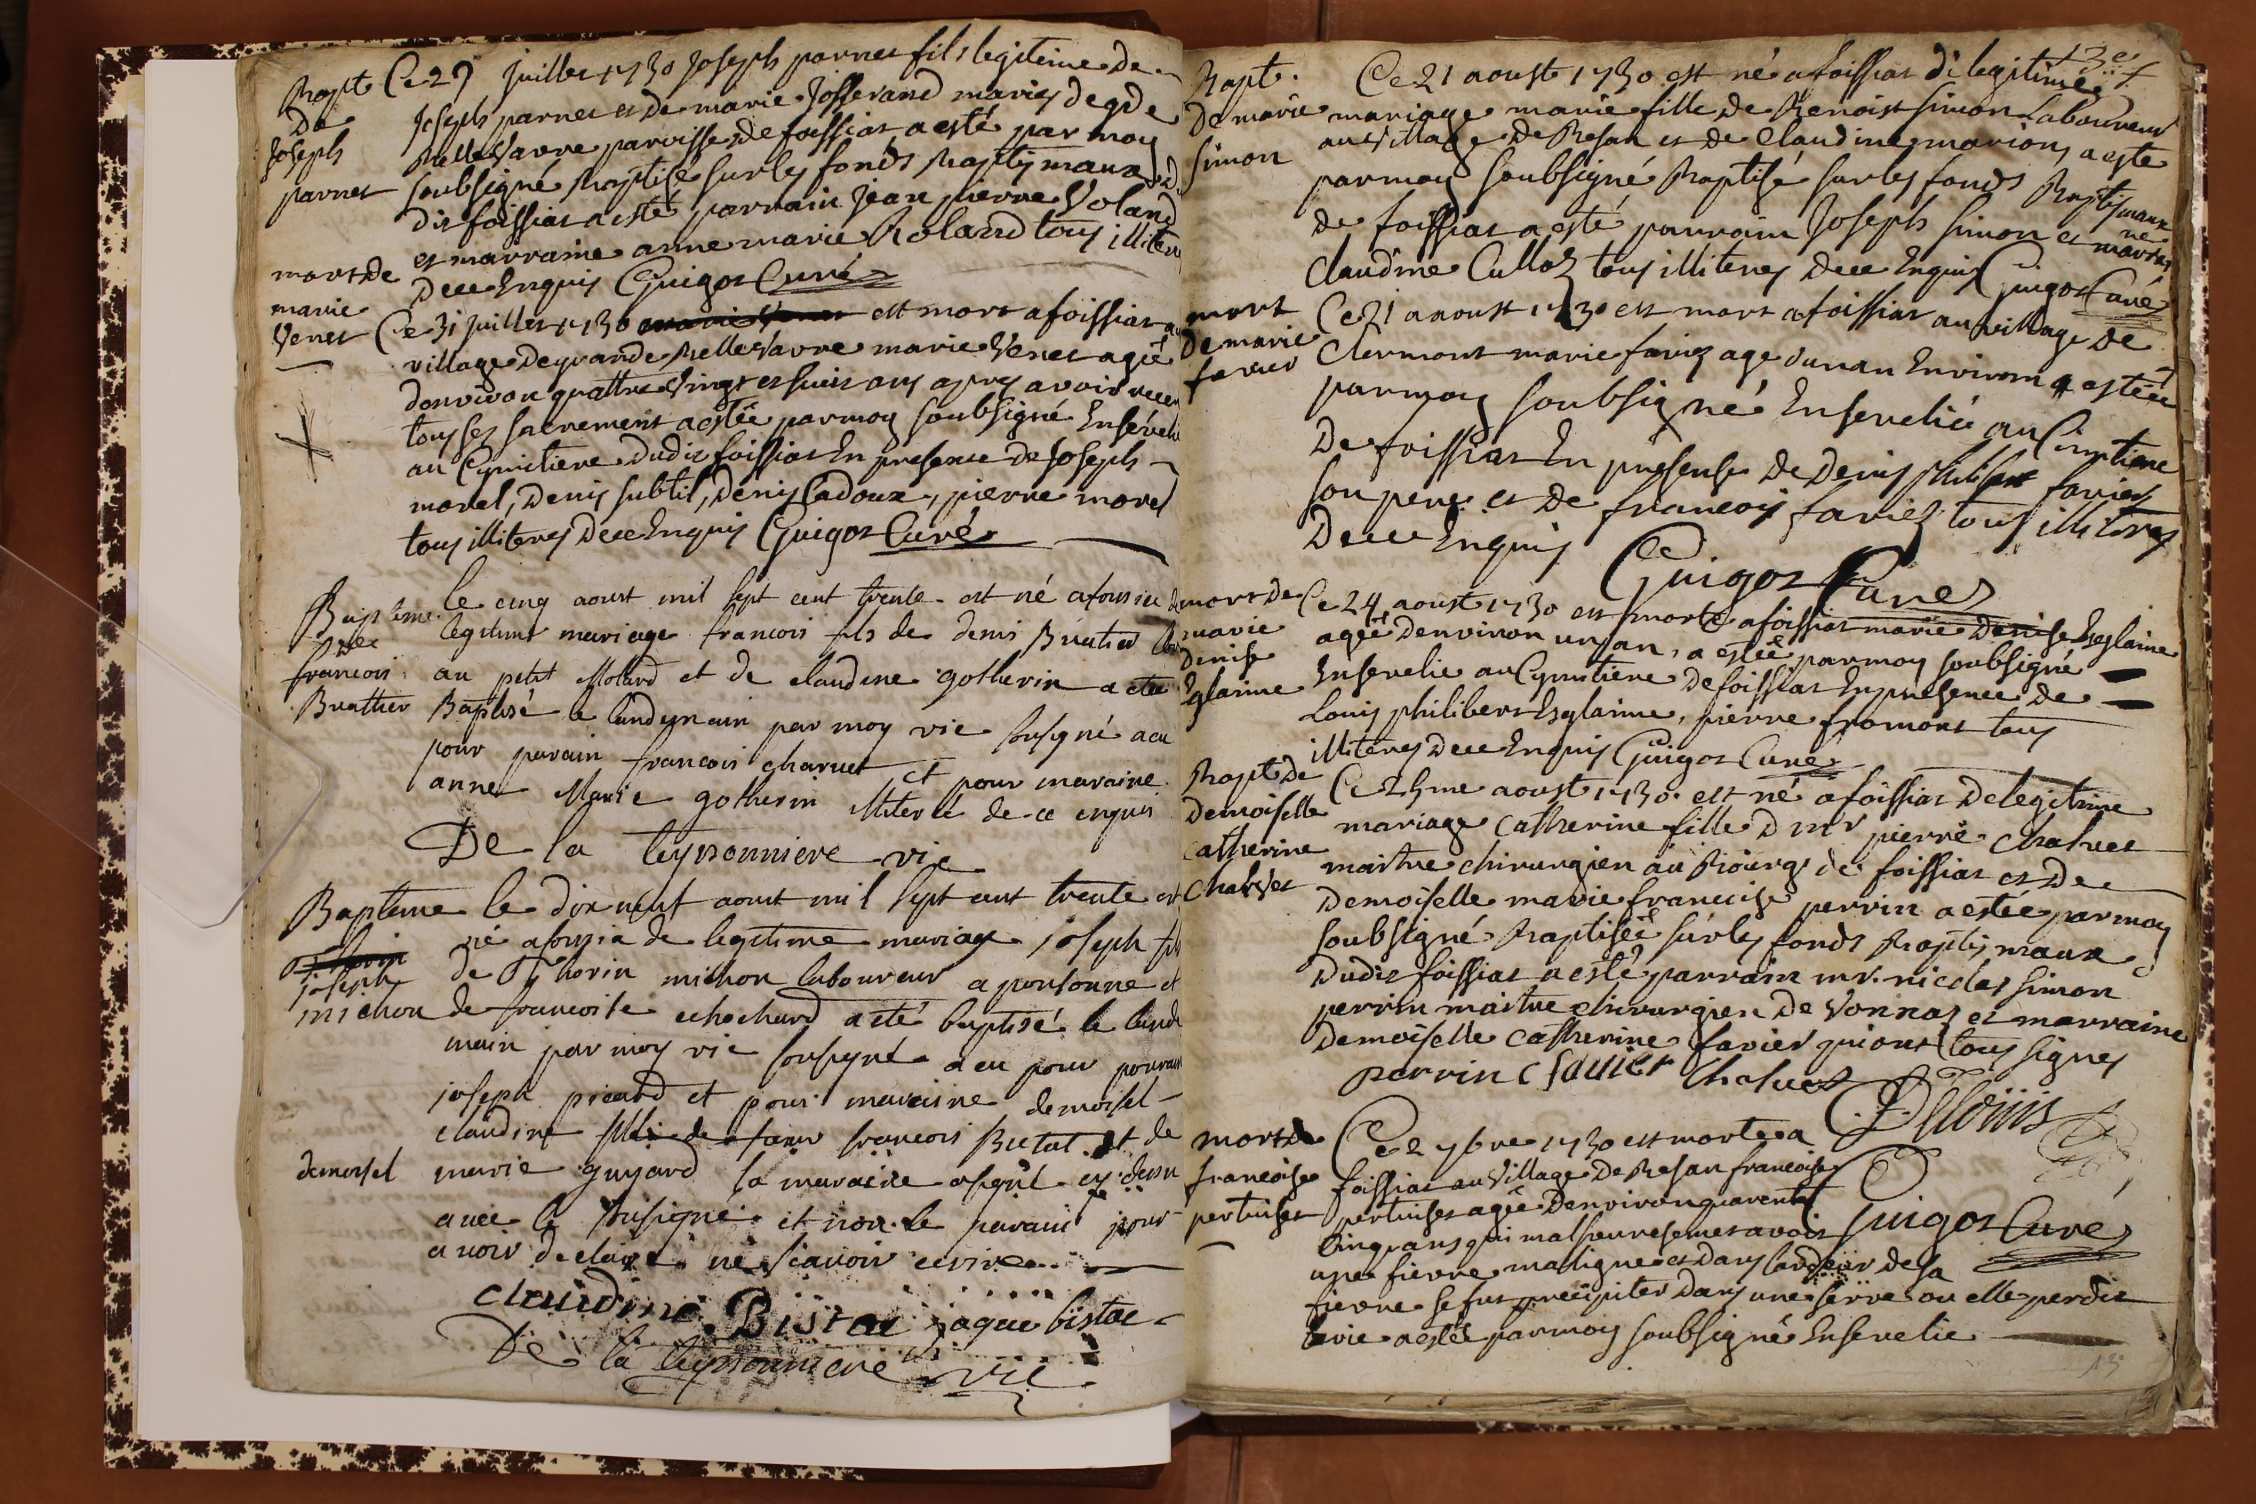 Bapt Ce 29 Juillet 1730 Joseph parnet fils legitime de
De Joseph parnet et de marie Josserand mariés de gde
Joseph Bellevavre paroisse de foissiat a esté par moy
parnet soubsigné Baptisé sur les fonds Baptismaux du
dit foissiat a esté parrain Jean pierre Voland
et marraine anne marie Roland tous illiteres
Dece Enquis Guigot Curé
mort De
marie
Venet Ce 31 juillet 1730 est mort a foissiat au
village de grande Bellevavre marie Venet agée
denviron quattre vingt et huit ans apres avoir receu
tous ses sacrement a estée par moy soubsigné Enséveli
au Cymitiere dudit foissiat En presence de Joseph
morel, Denis subtil, Denis Cadoux, pierre morel
tous illiteres Dece Enquis Guigot Curé
Bapteme le cinq aoust mil sept cent trente est né a foissia de
De legitime mariage francois fils de denis Buatier
francois au petit Molard et de claudine gotherin a eté
Buathier Baptisé le landemain par moy vic sousigné a eu
pour parain francois charuet et pour maraine
anne Marie gotherin illiteré de ce enquis
De la teyssonniere vic
Bapteme le dix neuf aoust mil sept cent trente est
né a foissia de legitime mariage joseph fils
joseph de Thorin michon laboureur a ponsonne et
michon de francoise echochard a eté baptisé le lande
main par moy vic sousigné a eu pour parrain
joseph picard et pour maraine demoisel
claudine fille de francois Bictat et de
demoisel marie guyard la maraine a signé cy dessu
avec le sousigné et non le parain pour
avoir declaré ne scavoir ecrire
claudine Bistac jaque bistac
De la teyssonniere vic
13e
Bapt. Ce 21 aoust 1730 est né a foissiat de legitime
De marie mariage marie fille de Benoist simon Laboureur
simon au village de Besan et de Claudine marion, a esté
par moy soubsigné Baptisé sur les fonds Baptismaux
de foissiat a esté parrain Joseph simon et marraine
Claudine Culloz tous illiteres Dece Enquis Guigot Curé
mort Ce 21 aaoust 1730 est mort a foissiat au village de
De marie Clermont marie favier age dun an Environ a estée
favier par moy soubsigné Ensevelie au Cimtiere
De foissiat En presense de Denis philibert favier
son pere et de francois favier tous illitres
Dece Enquis Guigot Curé
mort de Ce 24 aoust 1730 est morte a foissiat marie Denise Esglaime
marie agée denviron un an, a estée par moy soubsigné
Denise Ensevelie au Cymitiere de foissiat En presence de
Eglaime Louis philibert Esglaime, pierre fromont tous
illiteres Dece Enquis Guigot Curé
Bapt De Ce 25me aoust 1730 est né a foissiat De legitime
Demoiselle mariage Catherine fille D mr pierre Chalvet
Catherine maitre chirurgien au Bourg de foissiat et De
Chalvet Demoiselle marie francoise perrin a estée par moy
soubsigné Baptisée sur les fonds Baptismaux
Dudit foissiat a esté parrain mr. nicolas simon
perrin maitre chirurgien De Vonnas et marraine
Demoiselle Catherine favier qui ont tous signes
perrin C favier Chalvet
Delouis
mort de Ce 2 7bre 1730 est morte a
francoise foissiat au village De Besan francoise
pertuiset pertuiset agée Denviron quarente
Cinq ans qui malheuresement avoit Guigot Curé
une fievre maligne et Dans lardeur de sa
fievre se fut precipiter Dans une serve ou elle perdit
la vie a esté par moy soubsigné Ensevelie
13